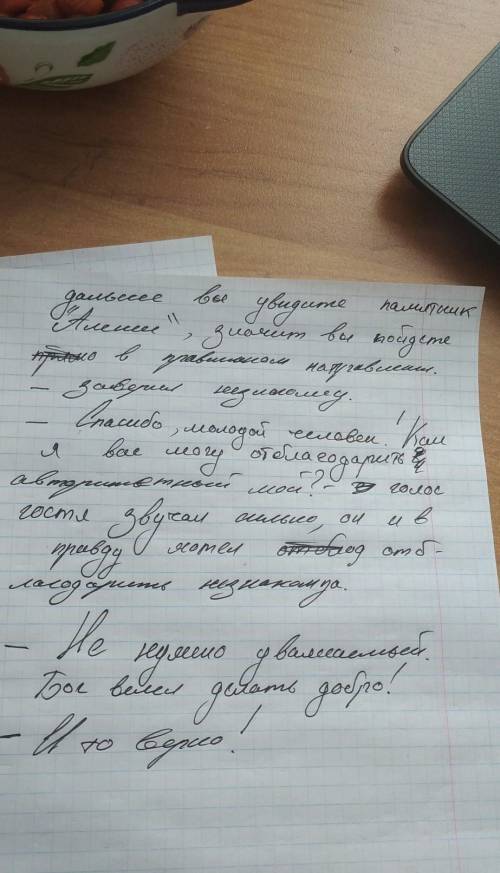 дальше вы увидите памятник
"Алеше", значит вы пойдете
в правильном направлении.
— заверил
— Спасибо, молодой человек! Как
я вас могу отблагодарить
мой? - голос
гостя звучал сильно, он и в
правду хотел отб-
лагодарить незнакомца.
— Не нужно уважаемый.
Бог велел делать добро!
— И то верно!